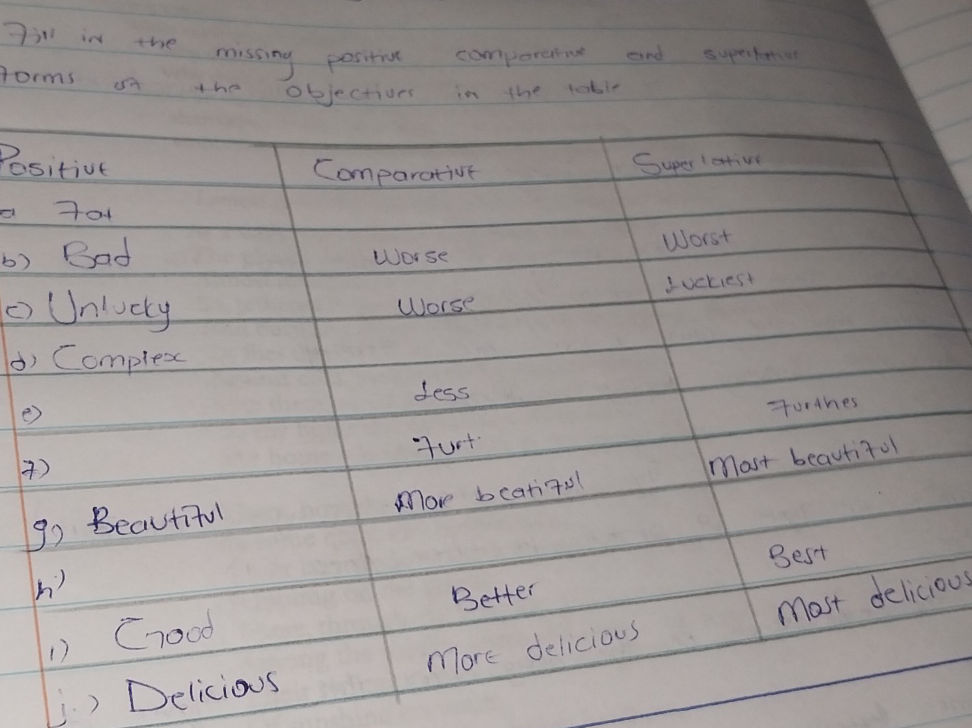 Fill in the missing positive comparative and superlative
forms of the Objectives in the table
Positive Comparative Superlative
a Fat
b) Bad Worse Worst
c) Unlucky Worse Luckiest
d) Complex
e) Less
f) Furt Furthes
g) Beautiful More beatiful Most beautiful
h)
i) Good Better Best
j.) Delicious More delicious Most delicious